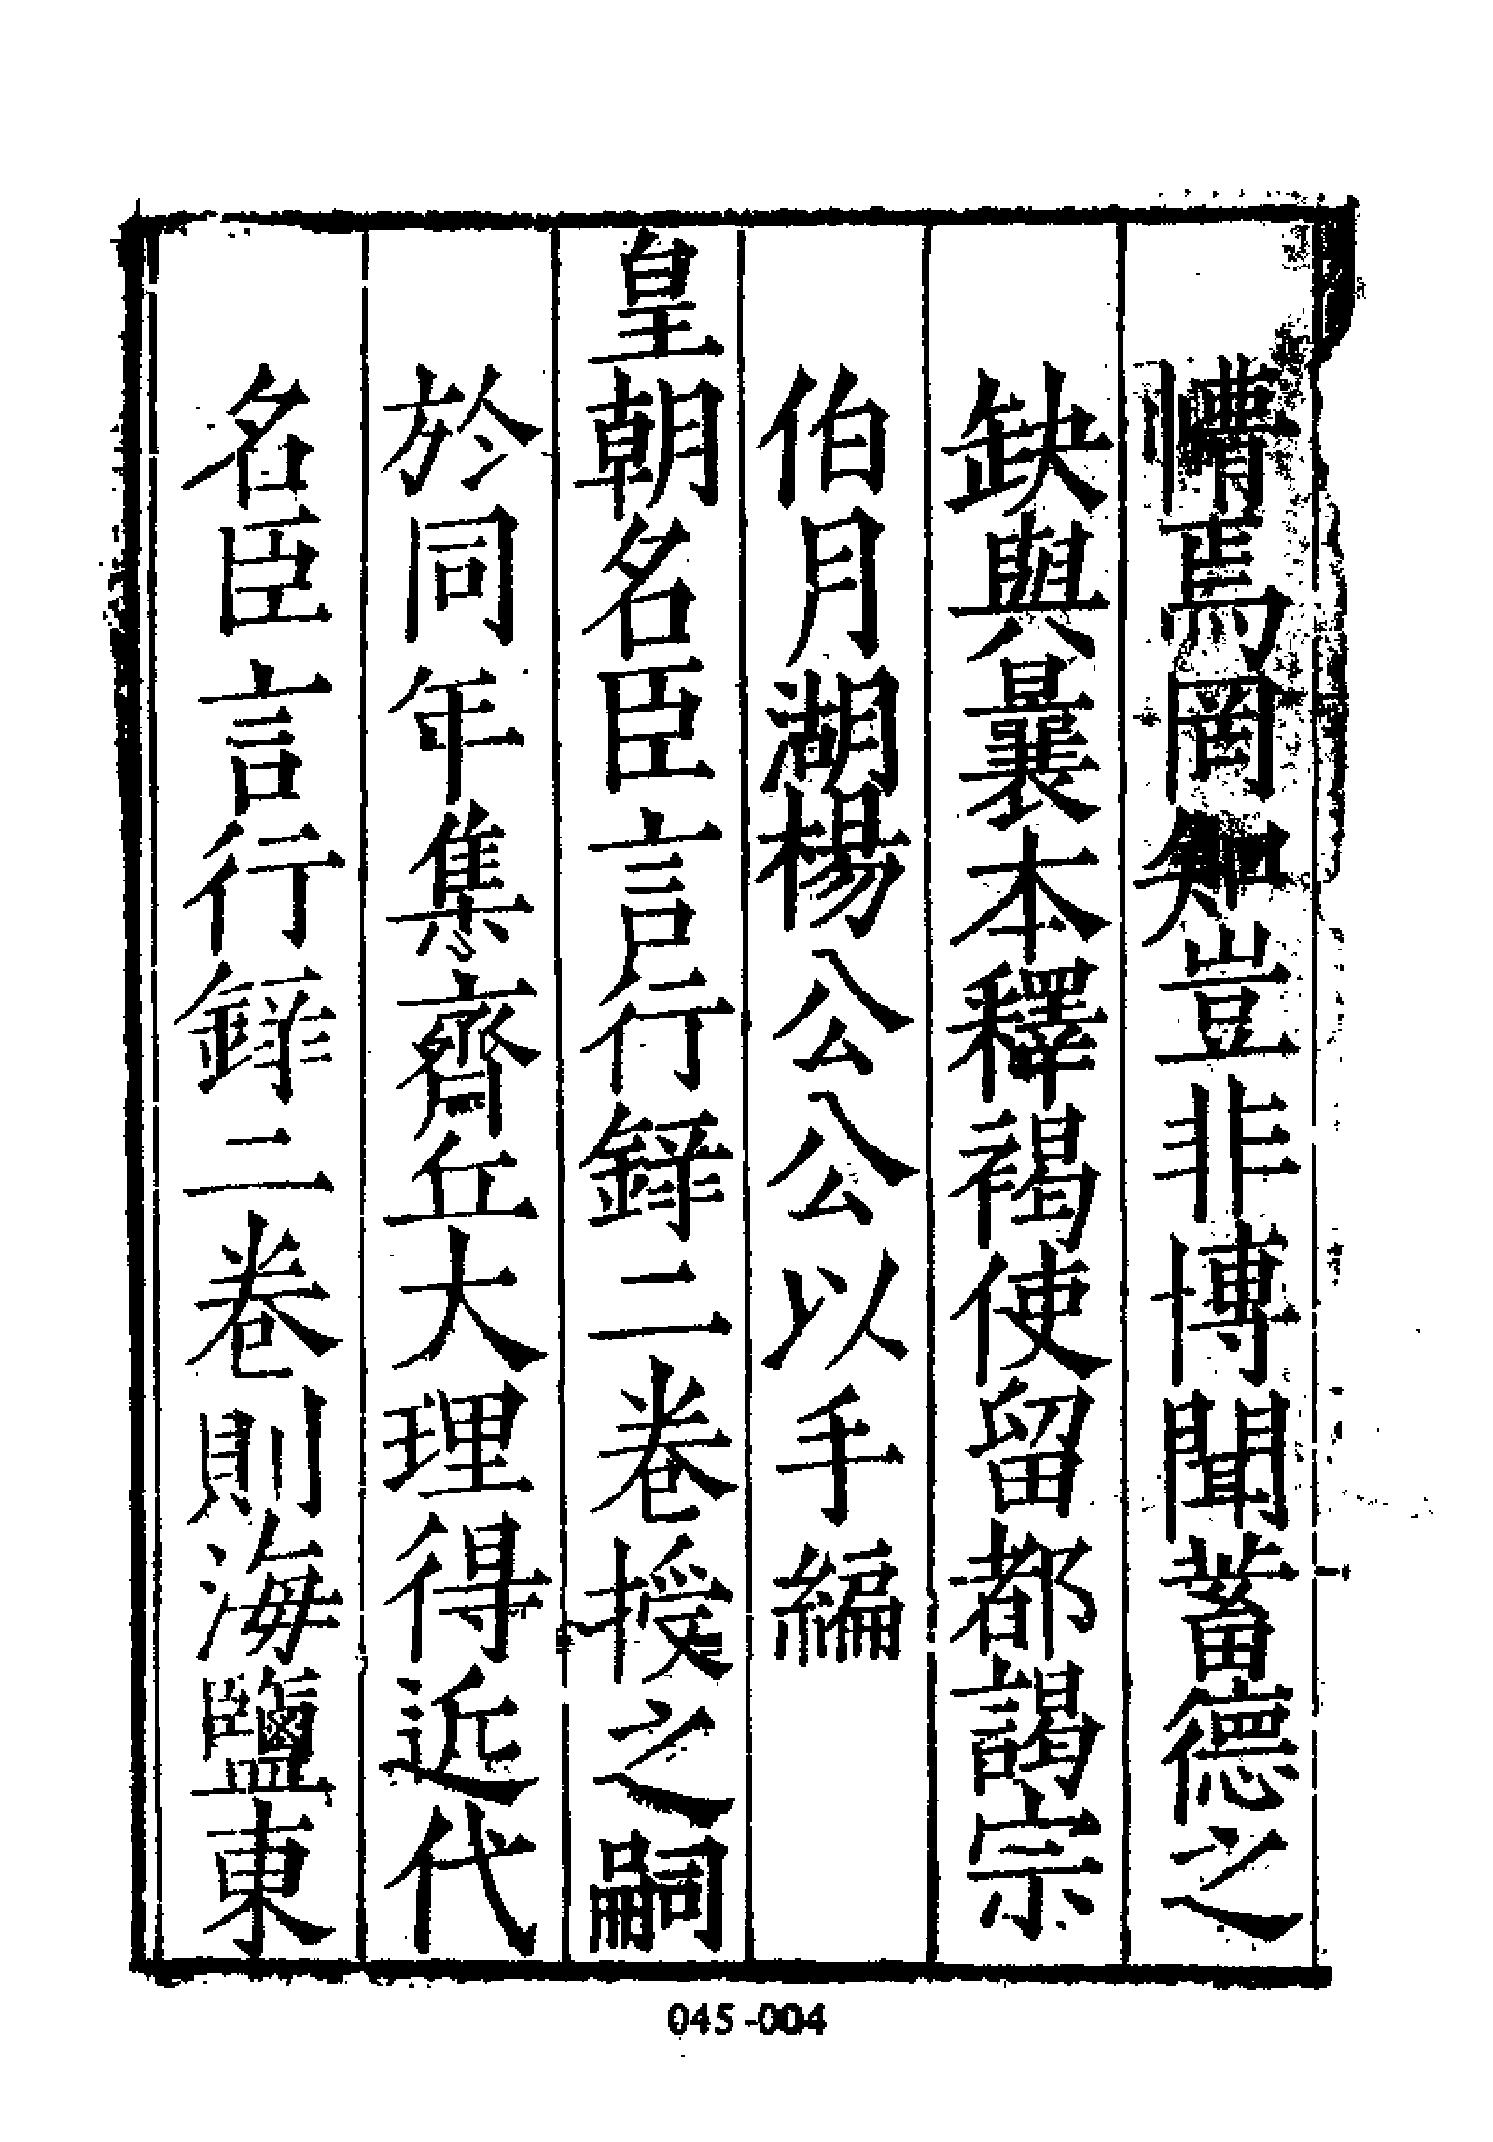 懵焉罔知豈非博聞蓄德之
缺與曩本釋褐使留都謁宗
伯月湖楊公公以手編
皇朝名臣言行録二卷授之嗣
於同年集齋丘大理得近代
名臣言行録二卷則海鹽東
045-004